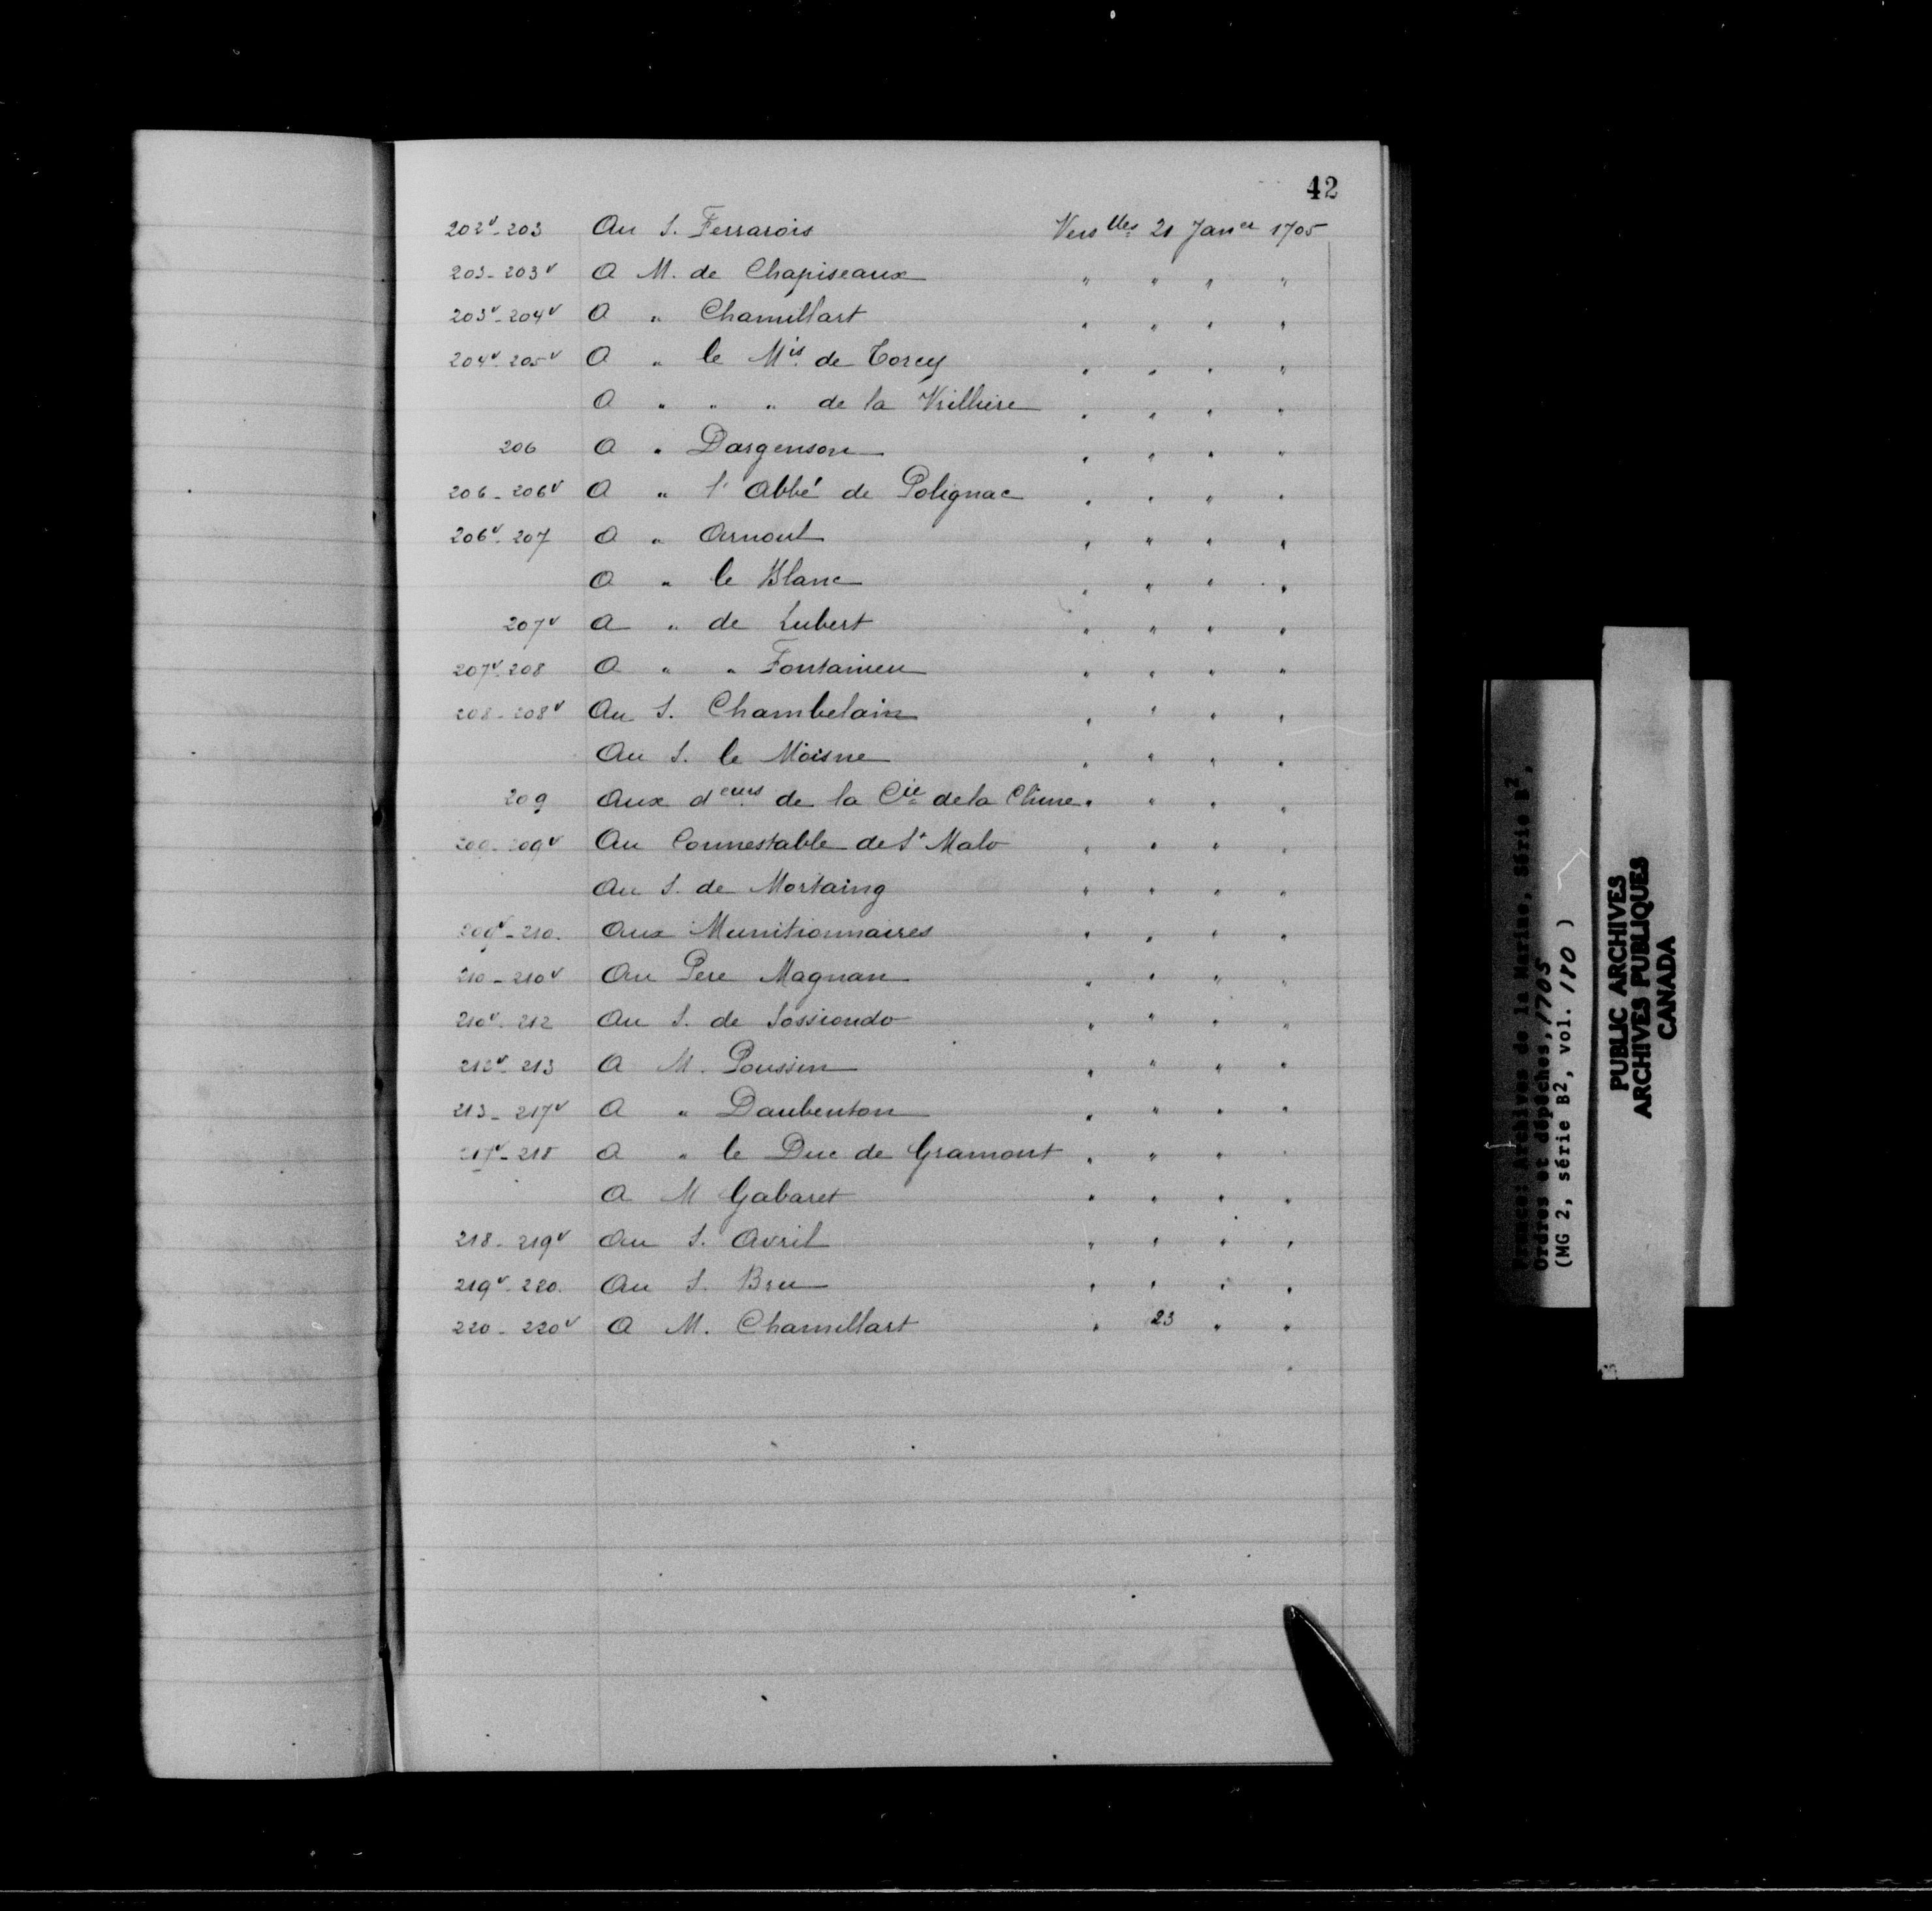 42
202v-203 Au S. Ferrarois Verslles 21 Janer 1705
203-203v A M. de Chapiseaux " " " "
203v-204v A " Chamillart " " " "
204v-205v A " le Mis de Torcy " " " "
A " " " de la Vrilliere " " " "
206 A " Dargenson " " " "
206-206v A " l'Abbé de Polignac " " " "
206v-207 A " Arnoul " " " "
A " le Blanc " " " "
207v A " de Lubert " " " "
207v-208 A " " Fontanieu " " " "
208-208v Au S. Chambelain " " " "
Au S. le Moisne " " " "
209 Aux deurs de la Cie de la Chine " " " "
209-209v Au Connestable de St Malo " " " "
Au S. de Mortaing " " " "
209v-210. Aux Munitionnaires " " " "
210-210v Au Pere Magnan " " " "
210v-212 Au S. de Sossiondo " " " "
212v-213 A M. Poussin " " " "
213-217v A " Daubenton " " " "
217v-218 A " le Duc de Gramont " " " "
A M Gabaret " " " "
218-219v Au S. Avril " " " "
219v-220. Au S. Bru " " " "
220-220v A M. Chamillart " 23 " "
France: Archives de la Marine, Série B2,
Ordres et dépêches, 1705
(MG 2, série B2, vol. 180 )
PUBLIC ARCHIVES
ARCHIVES PUBLIQUES
CANADA